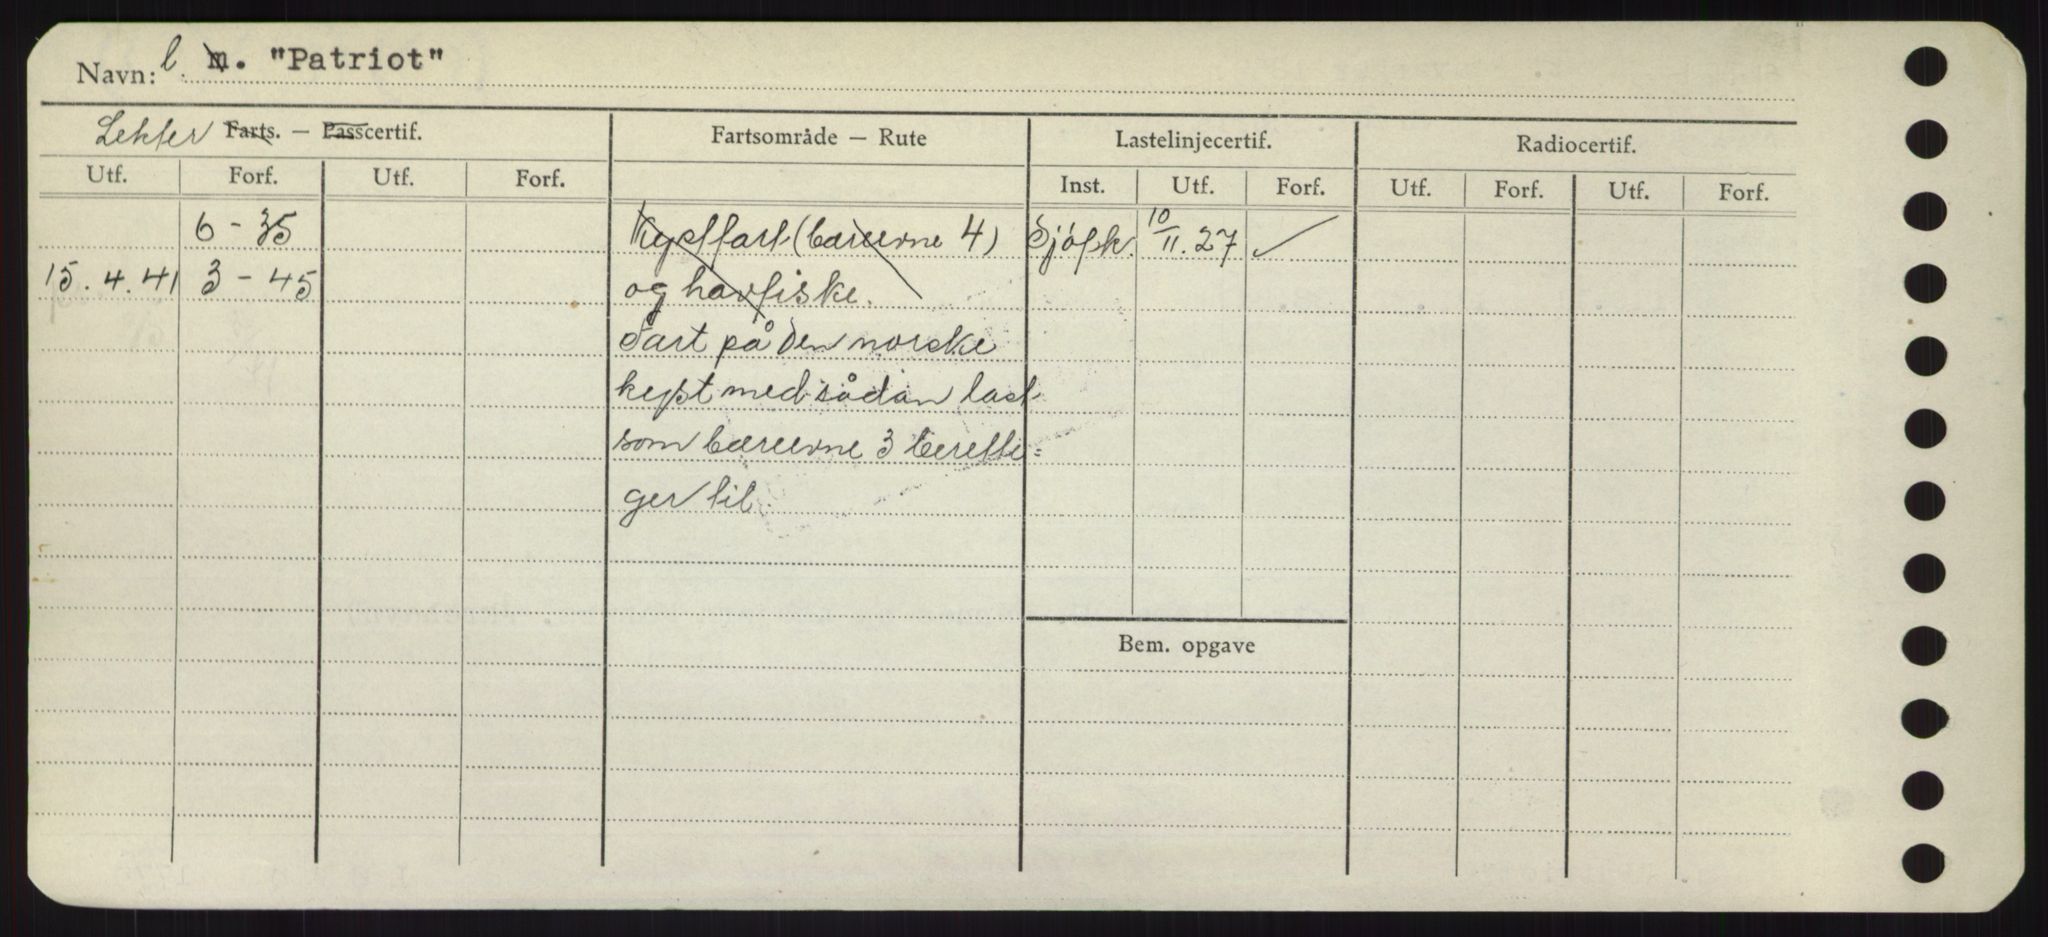 Navn: l. m. "Patriot"
Lekter Farts. — Passcertif. Fartsområde — Rute Lastelinjecertif. Radiocertif.
Utf. Forf. Utf. Forf. Inst. Utf. Forf. Utf. Forf. Utf. Forf.
6 - 35 Kystfart (bæreevne 4) Sjöfsk. 10/11.27 ✓
15.4.41 3 - 45 og havfiske.
Fart på den norske
kyst med sådan last
som bæreevne 3 beretti=
ger til.
Bem. opgave